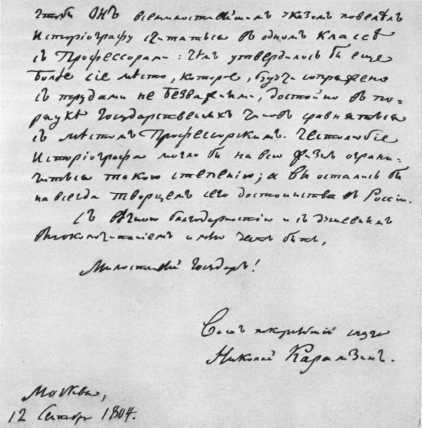 чтобы ОНЪ всемилостивѣйшимъ Указомъ повелѣлъ
Исторіографу считаться въ одномъ классѣ
съ Профессорами: чѣмъ утвердилось бы еще
болѣе сіе мѣсто, которое, будучи сопряжено
съ трудами не безважными, достойно въ по-
рядкѣ Государственныхъ чиновъ сравняться
съ мѣстомъ Профессорскимъ. Честолюбіе
Исторіографа могло бы на всю жизнь ограни-
читься такою степенью; а Вы остались бы
навсегда творцемъ сего достоинства въ Россіи.
Съ вѣчною благодарностію и съ душевнымъ
высокопочитаніемъ имѣю честь быть,
Милостивый Государь!
Вашъ покорнѣйшій слуга
Николай Карамзинъ.
Москва,
12 Сентябр 1804.